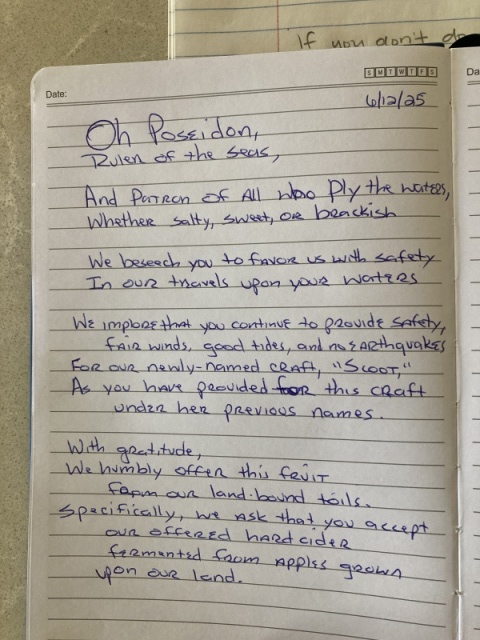 If you don't do
Date:
S M T W T F S
Da
6/12/25
Oh Poseidon,
Ruler of the seas,
And Patron of All who Ply the waters,
Whether salty, sweet, or brackish
We beseech you to favor us with safety
In our travels upon your waters
We implore that you continue to provide safety,
fair winds, good tides, and no earthquakes
For our newly-named craft, "Scoot,"
As you have provided for this craft
under her previous names.
With gratitude,
We humbly offer this fruit
from our land-bound toils.
Specifically, we ask that you accept
our offered hard cider
fermented from apples grown
upon our land.